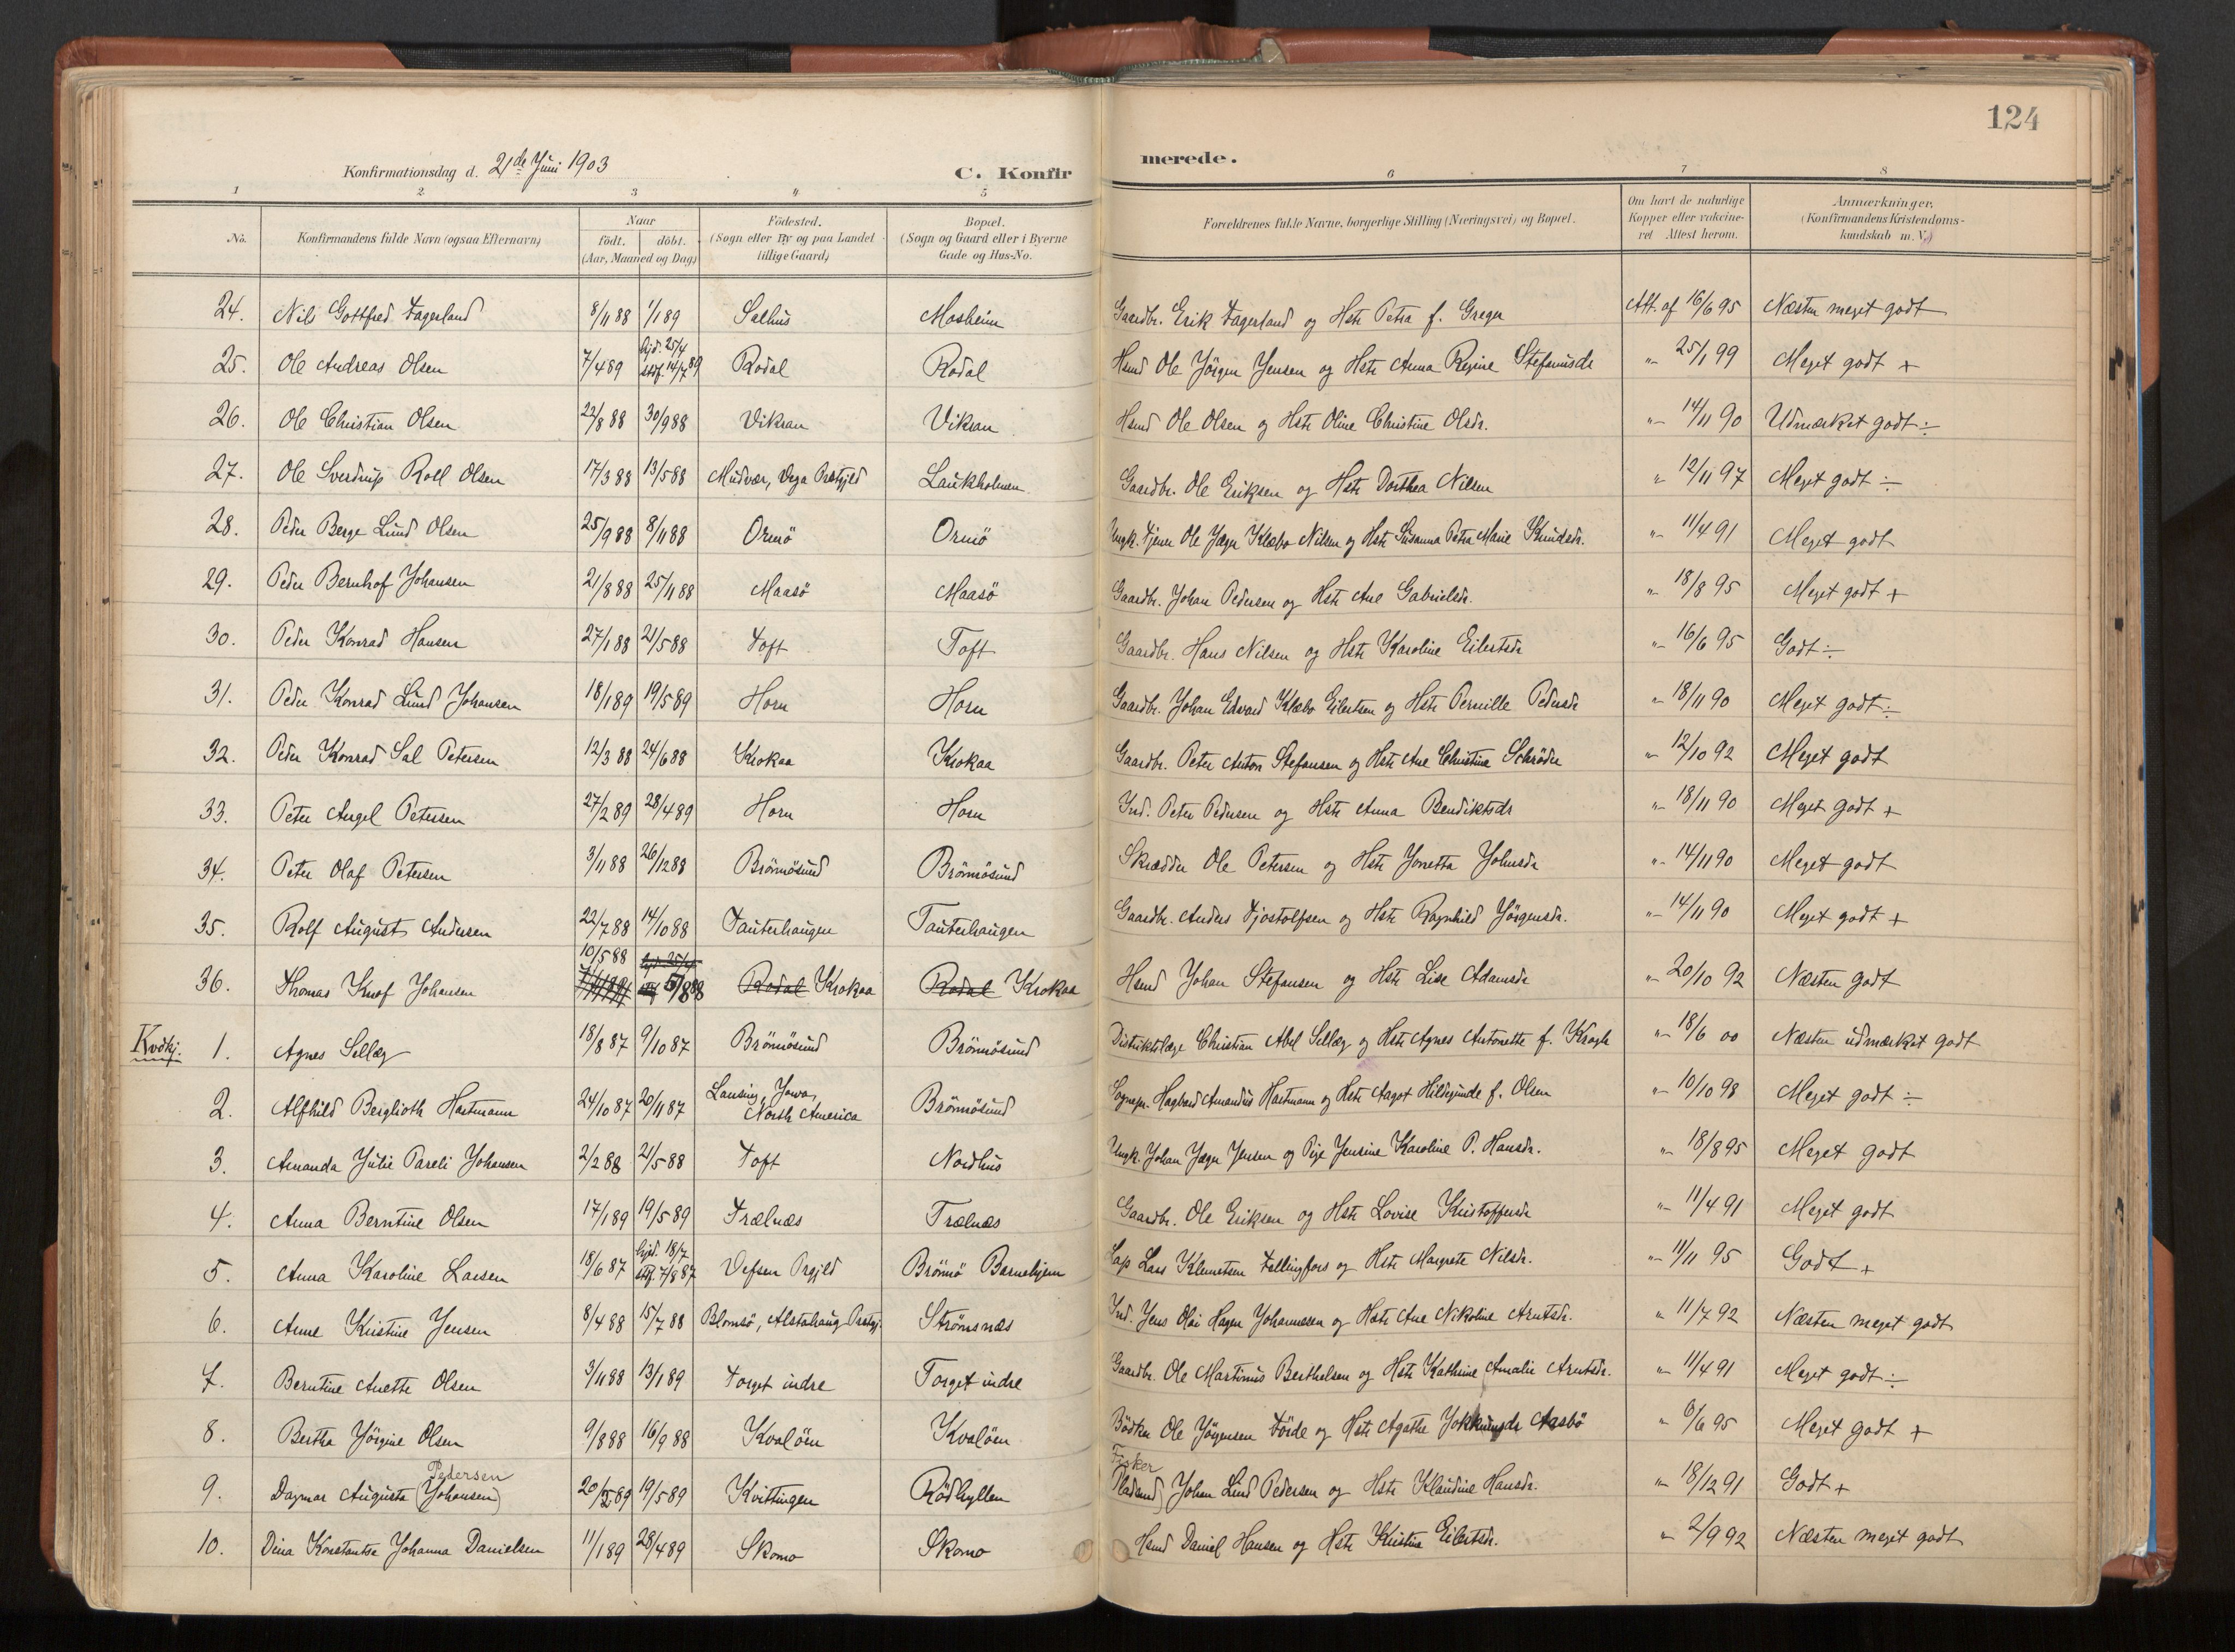 124
Konfirmationsdag d. 21de Juni 1903
C. Konfirmerede.
1 2 3 4 5 6 7 8
No. Konfirmandens fulde Navn (ogsaa Efternavn) Naar födt. döbt. (Aar, Maaned og Dag) Födested. (Sogn eller By og paa Landet tillige Gaard) Bopæl. (Sogn og Gaard eller i Byerne Gade og Hus-No. Forældrenes fulde Navne, borgerlige Stilling (Næringsvei) og Bopæl. Om havt de naturlige Kopper eller vakcineret Attest herom. Anmærkninger. (Konfirmandens Kristendomskundskab m. V.)
24. Nils Gottfred Fagerland 8/11 88 1/1 89 Salhus Mosheim Gaardbr. Erik Fagerland og Hstr Petra f. Greger Att. af 16/6 95 Næsten meget godt
25. Ole Andreas Olsen 7/4 89 hjd. 25/4 stdf. 14/7 89 Rodal Rodal Hsmd Ole Jörgen Jensen og Hstr Anna Regine Stefanusdr „- 25/1 99 Meget godt +
26. Ole Christian Olsen 22/8 88 30/9 88 Vikran Vikran Hsmd Ole Olsen og Hstr Oline Christine Olsdr. „- 14/11 90 Udmærket godt ÷
27. Ole Sverdrup Roll Olsen 17/3 88 13/5 88 Mudvær, Vega Prstgjld Laukholmen Gaardbr. Ole Eriksen og Hstr Dorthea Nilsen „ 12/11 97 Meget godt ÷
28. Peder Berge Lund Olsen 25/9 88 8/11 88 Ormö Ormö Ungk. Tjener Ole Jæger Klæbo Nilsen og Hstr Susanna Petra Marie Knudsdr. „- 11/4 91 Meget godt
29. Peder Bernhof Johansen 21/8 88 25/11 88 Maasö Maasö Gaardbr. Johan Pedersen og Hstr Ane Gabrielsdr. „- 18/8 95 Meget godt +
30. Peder Konrad Hansen 27/1 88 21/5 88 Toft Toft Gaardbr. Hans Nilsen og Hstr Karoline Eilertsdr „- 16/6 95 Godt ÷
31. Peder Konrad Lund Johansen 18/1 89 19/5 89 Horn Horn Gaardbr. Johan Edvard Klæbo Eilertsen og Hstr Pernille Pedersdr „- 18/11 90 Meget godt ÷
32. Peder Konrad Sal Petersen 12/3 88 24/6 88 Krokaa Krokaa Gaardbr. Peter Anton Stefansen og Hstr Ane Christine Schröder „- 12/10 92 Meget godt
33. Peter Angel Petersen 27/2 89 28/4 89 Horn Horn Ind. Peter Pedersen og Hstr Anna Bendiktsdr „- 18/11 90 Meget godt +
34. Peter Olaf Petersen 3/11 88 26/12 88 Brönnösund Brönnösund Skrædder Ole Petersen og Hstr Jonetta Johnsdr „- 14/11 90 Meget godt
35. Rolf August Andersen 22/7 88 14/10 88 Tauterhaugen Tauterhaugen Gaardbr. Anders Fjostolfsen og Hstr Ragnhild Jörgensdr. „- 14/11 90 Meget godt +
36. Thomas Knof Johansen 10/5 88 5/8 88 Rodal Krokaa Rodal Krokaa Hsmd Johan Stefansen og Hstr Lise Adamsdr „- 20/10 92 Næsten godt
Kvdkj. 1. Agnes Sellæg 18/8 87 9/10 87 Brönnösund Brönnösund Distriktslæge Christian Abel Sellæg og Hstr Agnes Antonette f. Kragh „- 18/6 00 Næsten udmærket godt
2. Alfhild Berglioth Hartmann 24/10 87 20/11 87 Lansing, Jowa, North America Brönnösund Sognepr. Hagbard Amandus Hartmann og Hstr Aagot Hildegunde f. Olsen „- 10/10 98 Meget godt ÷
3. Amanda Julie Pareli Johansen 2/2 88 21/5 88 Toft Nordhus Ungk. Johan Jæger Jensen og Pige Jensine Karoline P. Hansdr. „- 18/8 95 Meget godt
4. Anna Berntine Olsen 17/1 89 19/5 89 Trælnæs Trælnæs Gaardbr. Ole Eriksen og Hstr Lovise Kristoffersdr „- 11/4 91 Meget godt
5. Anna Karoline Larsen 18/6 87 hjd. 18/7 stdf. 7/8 87 Vefsen Prgjld Brönnö Barnehjem Lap Lars Klemetsen Fellingfors og Hstr Margrete Nilsdr. „- 11/11 95 Godt +
6. Anne Kristine Jensen 8/4 88 15/7 88 Blomsö, Alstahaug Prstgj. Strömsnæs Ind. Jens Olai Hagen Johannesen og Hstr Ane Nikoline Arntsdr. „ 11/7 92 Næsten meget godt
7. Berntine Anette Olsen 3/11 88 13/1 89 Torget indre Torget indre Gaardbr. Ole Martinus Berthelsen og Hstr Kathrine Amalie Arntsdr. „ 11/4 91 Meget godt ÷
8. Bertha Jörgine Olsen 9/8 88 16/9 88 Kvalöen Kvalöen Bödker Ole Jörgensen Förde og Hstr Agathe Aasbö „ 6/6 95 Meget godt +
9. Dagmar Augusta (Johansen) Pedersen 20/2 89 19/5 89 Kvittingen Rödhyllen Fisker Pladsmd) Johan Lind Pedersen og Hstr Klaudine Hansdr. „ 18/12 91 Godt +
10. Dina Konstantse Johanna Danielsen 11/1 89 28/4 89 Skomo Skomo Hsmd Daniel Hansen og Hstr Kristine Eilertsdr. „ 2/9 92 Næsten meget godt